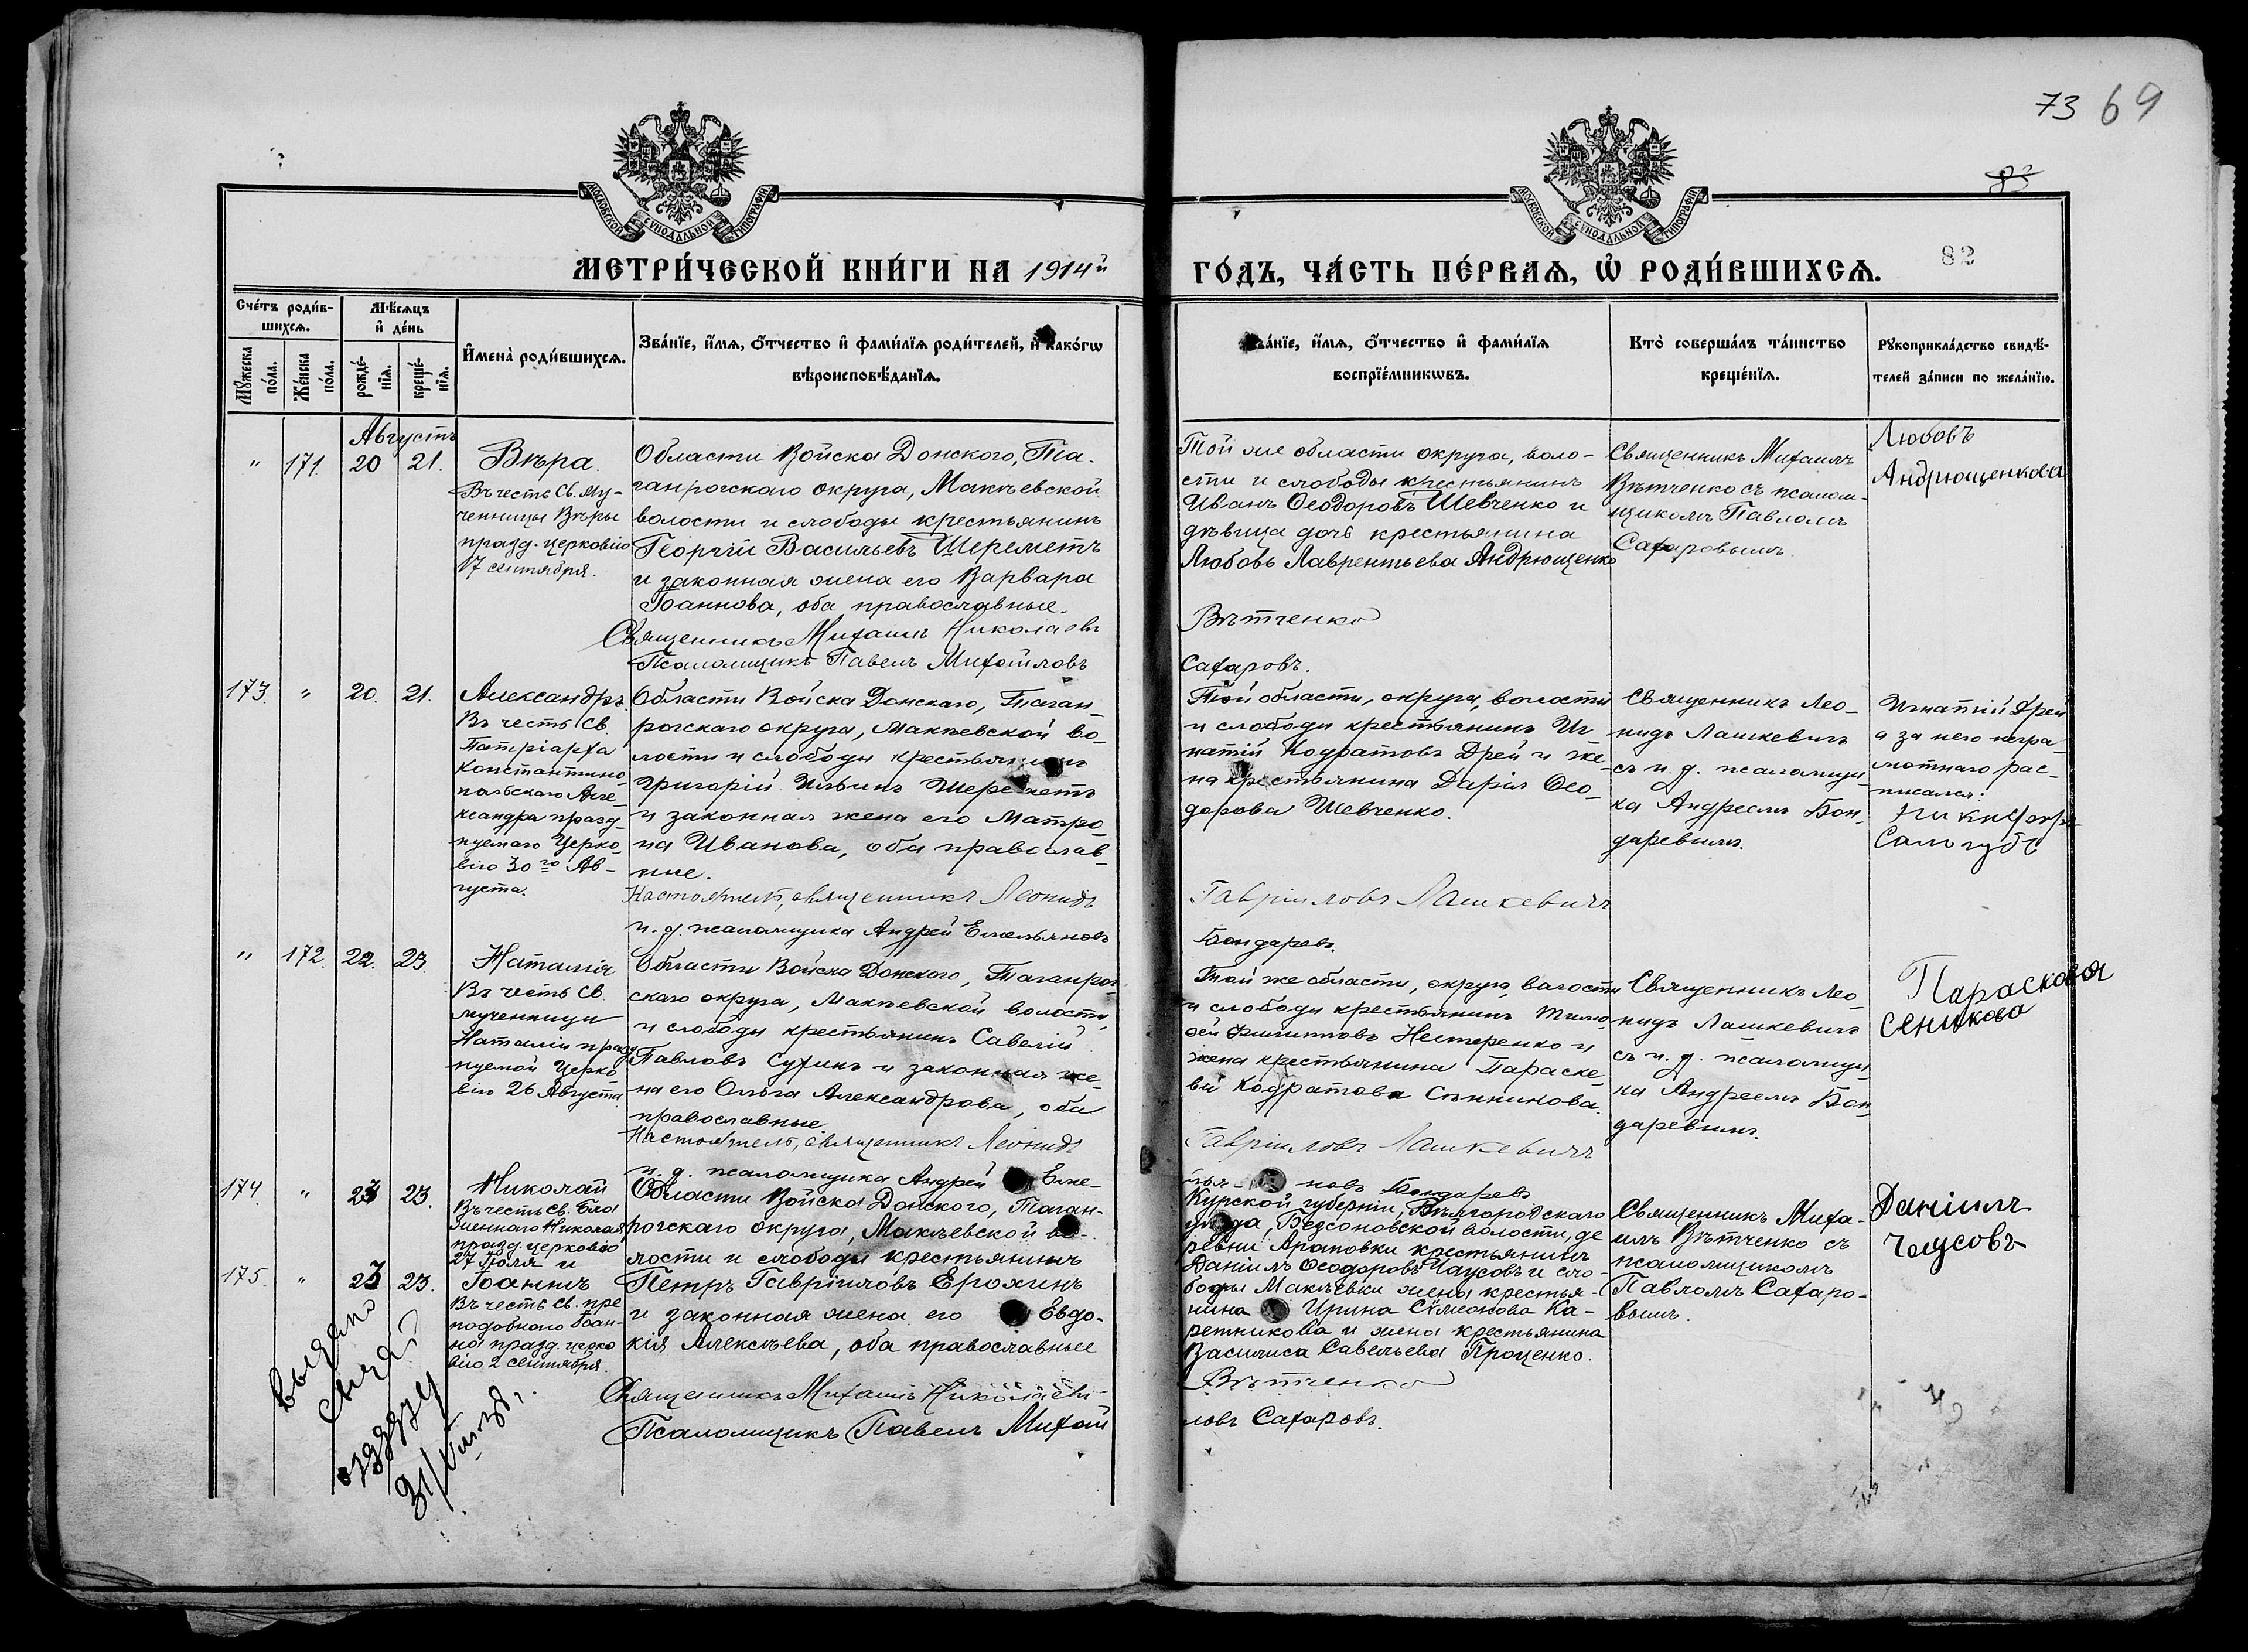 73 69
83
82
МОСКОВСКОЙ СѴНОДАЛЬНОЙ ТИПОГРАФІИ
МОСКОВСКОЙ СѴНОДАЛЬНОЙ ТИПОГРАФІИ
МЕТРИ́ЧЕСКОЙ КНИ́ГИ НА 1914й
ГО́ДЪ, ЧА́СТЬ ПЕ́РВАѦ, Ѡ҆ РОДИ́ВШИХСѦ.
Сче́тъ роди́в-
шихсѧ.
Мѣ́сѧцъ
и҆ де́нь
Мꙋ́жеска по́ла.
Же́нска по́ла.
рожде́-
нїѧ.
креще́-
нїѧ.
И҆мена̀ роди́вшихсѧ.
Зва́нїе, и҆́мѧ, ѻ҆́тчество и҆ фами́лїѧ роди́телей, и҆ како́гѡ
вѣроисповѣ́данїѧ.
Зва́нїе, и҆́мѧ, ѻ҆́тчество и҆ фами́лїѧ
воспрїе́мникѡвъ.
Кто̀ соверша́лъ та́инство
креще́нїѧ.
Рꙋкоприкла́дство свидѣ́-
телей за́писи по жела́нїю.
Августъ
" 171. 20 21.
Вѣра.
Въ честь Св. му-
ченницы Вѣры
празд. церковію
17 сентября.
Области Войска Донского, Та-
ганрогскаго округа, Макѣевской
волости и слободы крестьянинъ
Георгій Васильевъ Шереметъ
и законная жена его Варвара
Іоаннова, оба православные.
Священникъ Михаилъ Николаевъ
Псаломщикъ Павелъ Михайловъ
Той же области округа, воло-
сти и слободы крестьянинъ
Иванъ Ѳеодоровъ Шевченко и
дѣвица дочь крестьянина
Любовь Лаврентьева Андрющенко
Вѣтченко
Сахаровъ.
Священникъ Михаилъ
Вѣтченко съ псалом-
щикомъ Павломъ
Сахаровымъ.
Любовъ
Андрющенкова
173. " 20. 21.
Александръ.
Въ честь Св.
Патріарха
Константино-
польскаго Але-
ксандра празд-
нуемаго Церко-
вію 30го Ав-
густа.
Области Войска Донскаго, Таган-
рогскаго округа, Макѣевской во-
лости и слободы крестьянинъ
Григорій Ильинъ Шереметъ
и законная жена его Матро-
на Иванова, оба православ-
ные.
Настоятель, священникъ Леонидъ
и. д. псаломщика Андрей Емельяновъ
Той области, округа, волости
и слободы крестьянинъ Иг-
натій Кодратовъ Дрей и же-
на крестьянина Дарія Ѳео-
дорова Шевченко.
Гавріиловъ Лашкевичъ
Бондаревъ.
Священникъ Лео-
нидъ Лашкевичъ
съ и. д. псаломщи-
ка Андреемъ Бон-
даревымъ.
Игнатій Дрей
а за него негра-
мотнаго рас-
писался:
" 172. 22. 23.
Наталія
Въ честь Св.
мученицы
Наталіи празд-
нуемой Церко-
вію 26 Августа
Области Войска Донского, Таганрог-
скаго округа, Макѣевской волости,
и слободы крестьянинъ Савелій
Павловъ Сухинъ и законная же-
на его Ольга Александрова, оба
православные.
Настоятель, священникъ Леонидъ
и. д. псаломщика Андрей Емe-
Той же области, округа, волости
и слободы крестьянинъ Тимо-
ѳей Филипповъ Нестеренко и
жена крестьянина Параске-
ва Кодратова Сѣнникова.
Гавріиловъ Лашкевичъ
лья- новъ Бондаревъ
Священникъ Лео-
нидъ Лашкевичъ
съ и. д. псаломщи-
ка Андреемъ Бон-
даревымъ.
Парасковия
Сеникова
174 " 23 23.
Николай
Въ честь Св. Бла
женнаго Николая
празд. церковію
27 Іюля и
175. " 23 23.
Іоаннъ
Въ честь Св. пре
подобнаго Іоан-
на празд. церко
вію 2 сентября.
Области Войска Донского, Таган-
рогскаго округа, Макѣевской во-
лости и слободы крестьянинъ
Петръ Гавріиловъ Ерохинъ
и законная жена его Евдо-
кія Алексѣева, оба православные
Священникъ Михаилъ Николаевъ
Псаломщикъ Павелъ Михай
Курской губерніи, Бѣлгородскаго
уѣзда, Бессоновской волости, де
ревни Араповки крестьянинъ
Даніилъ Ѳеодоровъ Чаусовъ и сло-
боды Макѣевки жена крестья-
нина Ирина Сѵмеонова Ка-
ретникова и жена крестьянина
Василиса Савельева Проценко.
Вѣтченко
ловъ Сахаровъ.
Священникъ Миха-
илъ Вѣтченко съ
псаломщикомъ
Павломъ Сахаро-
вымъ.
Даніилъ
Чаусовъ
Выдано